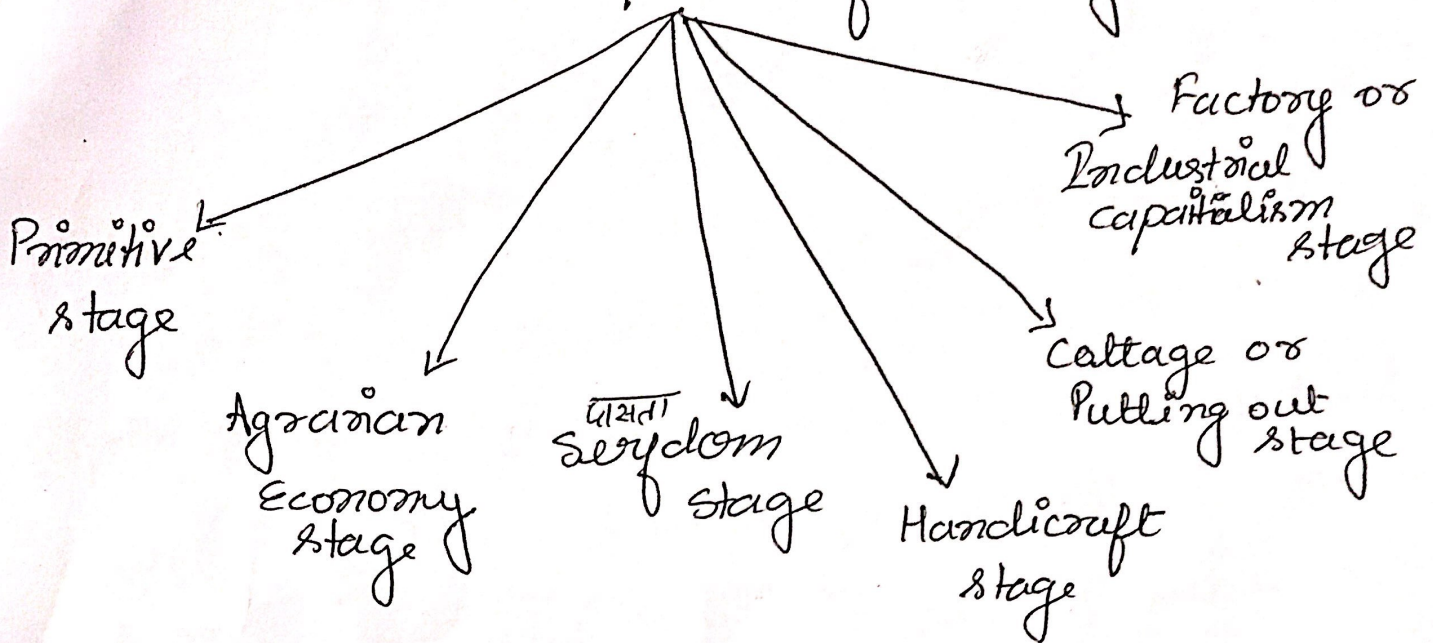 Primitive
stage
Agrarian
Economy
stage
दासता
Serfdom
stage
Handicraft
stage
Cattage or
Putting out
stage
Factory or
Industrial
capaitialism
stage